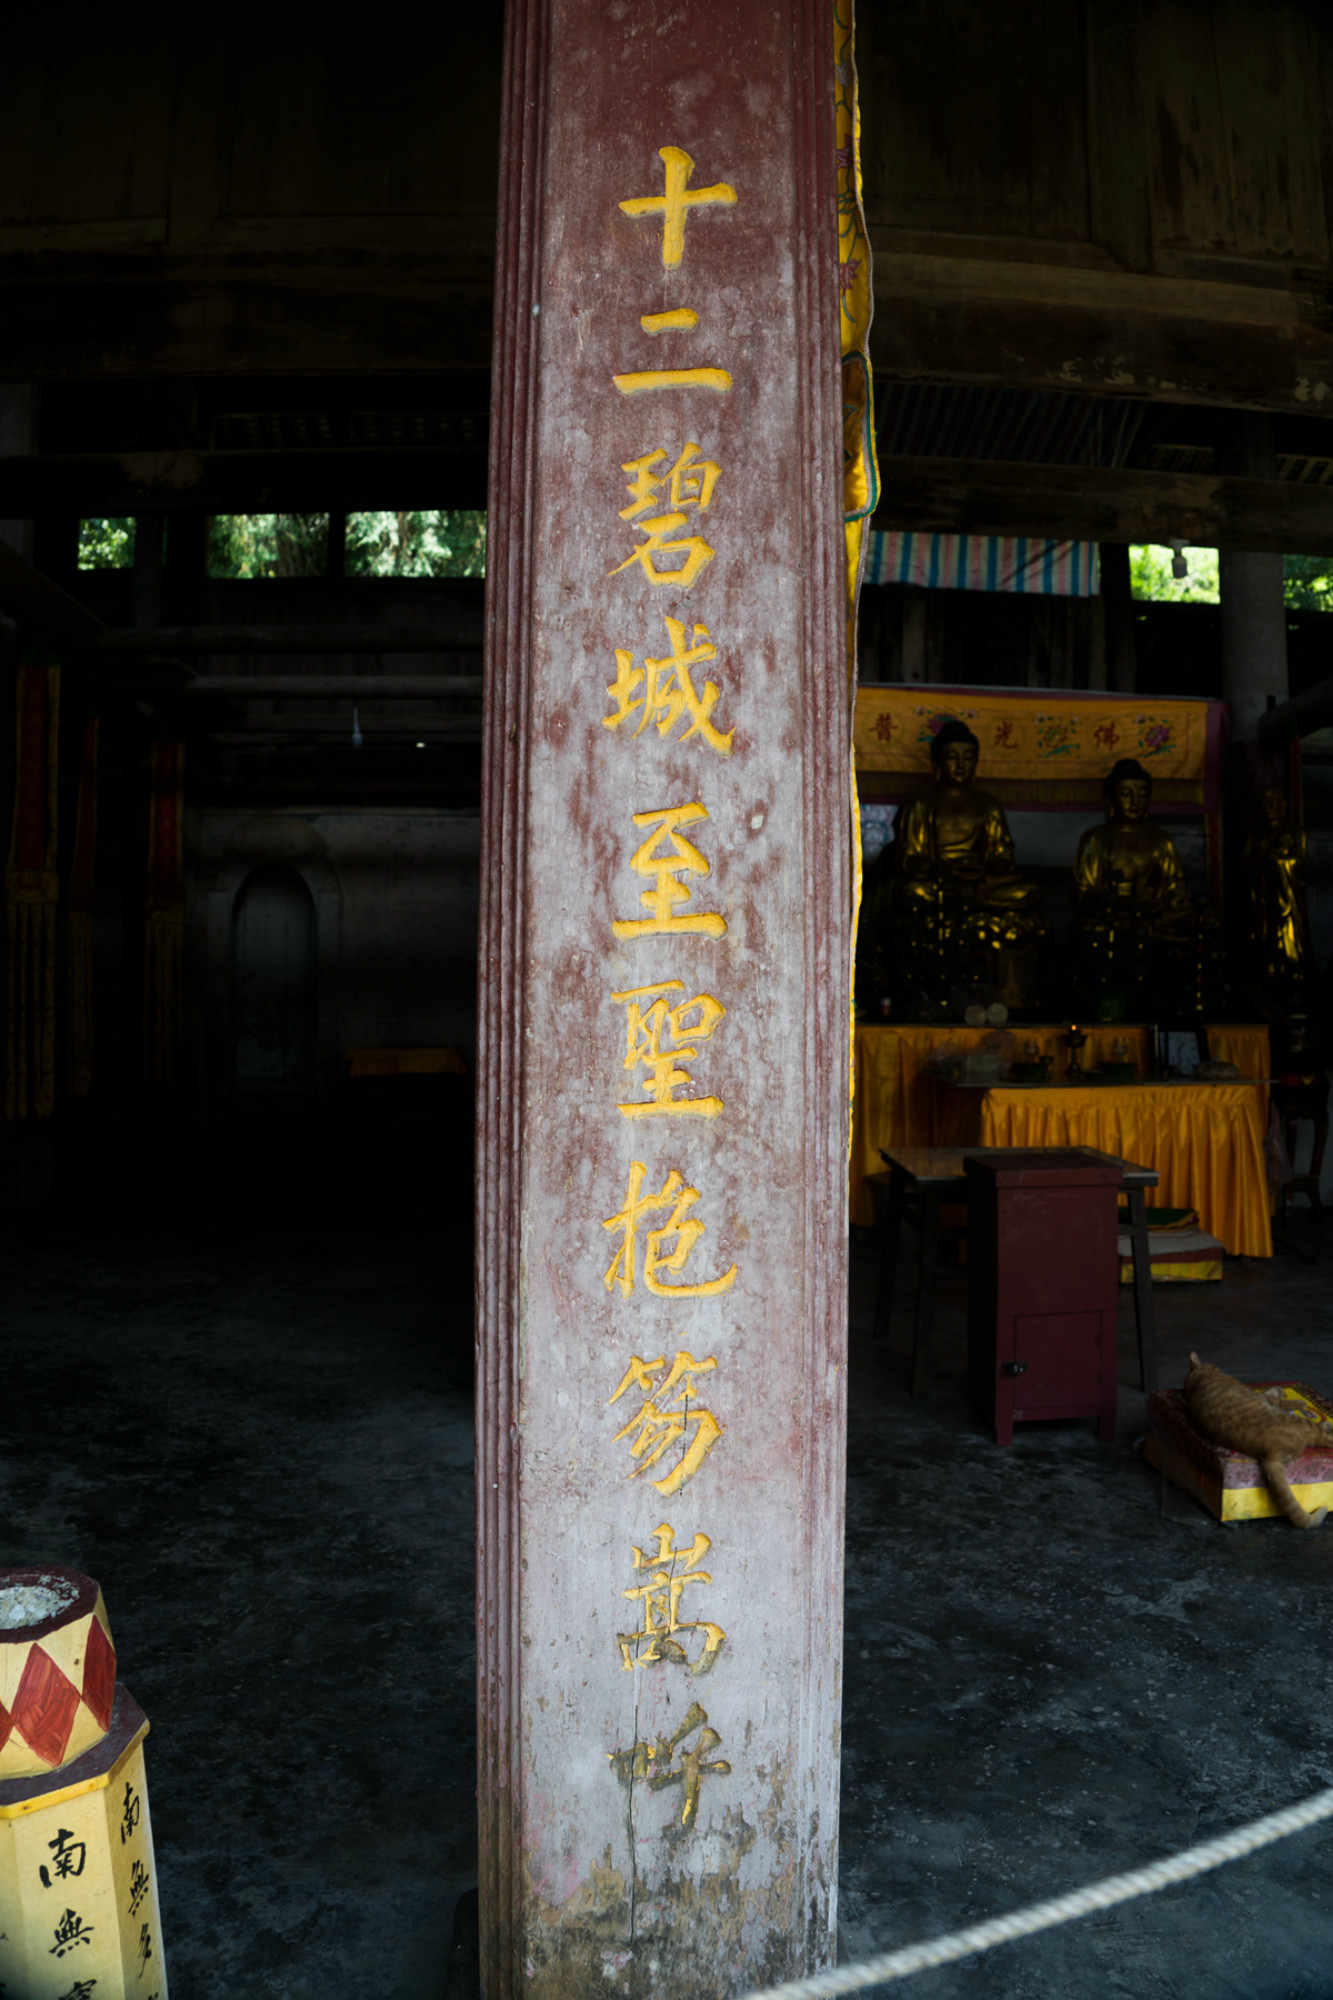 十二碧城至聖抱笏嵩呼
佛光普
南無多
南無寶